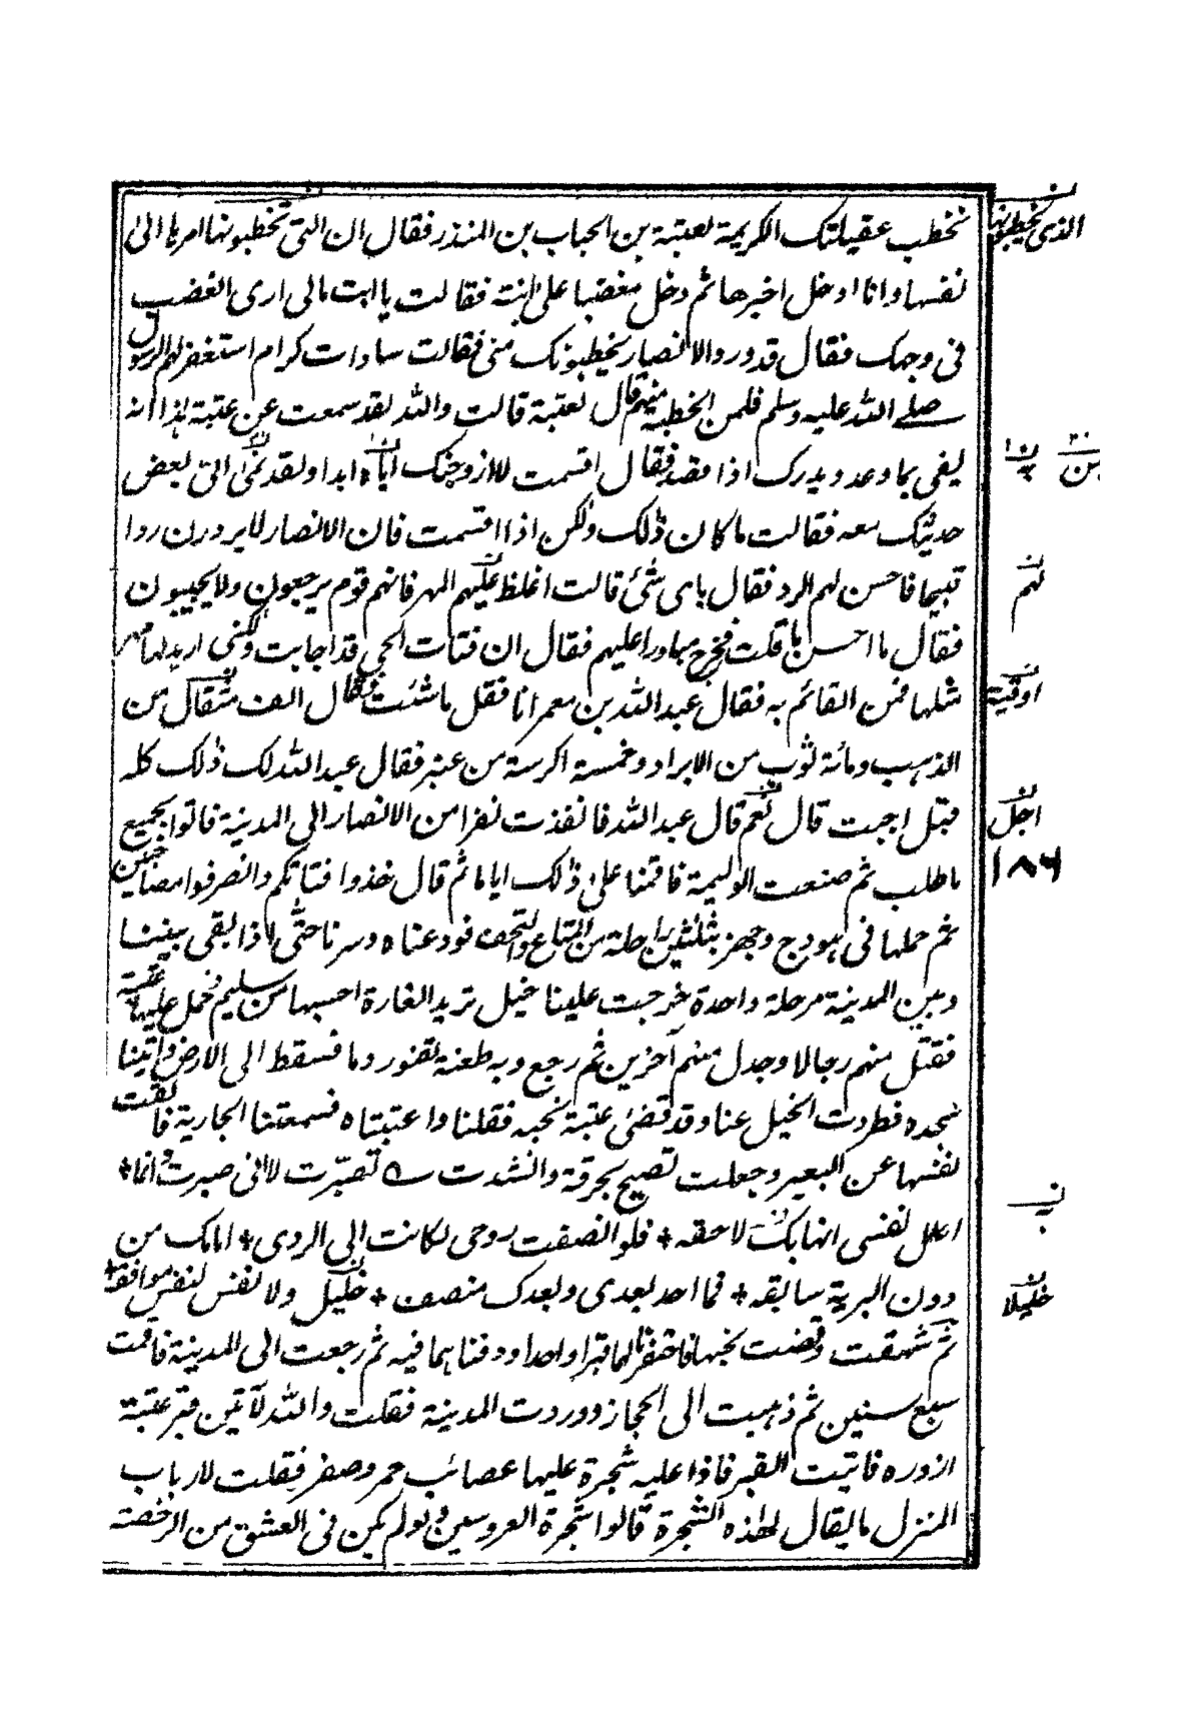 نخطب عقيلتك الكريمة لعتبة بن الحباب بن المنذر فقال ان التى تخطبونها امرها الى
الذى تخطبونها
نفسها وانا ادخل اخبرها ثم دخل مغضبا على ابنته فقالت يا ابت مالى ارى الغضب
فى وجهك فقال قد ورد الانصار يخطبونك منى فقالت سادات كرام استغفر لهم الرسول
صلے الله عليه وسلم فلمن الخطبة منهم قال لعتبة قالت والله لقد سمعت عن عتبة هذا انه
يفى بما وعد ويدرك اذا قصد فقال اقسمت لا ازوجنك اياه ابدا ولقد نمى الى بعض
به
من
حديثك معه فقالت ما كان ذلك ولكن اذا اقسمت فان الانصار لا يردون ردا
قبيحا فاحسن لهم الرد فقال باى شئ قالت اغلظ عليهم المهر فانهم قوم يرجعون ولا يجيبون
لهم
فقال ما احسن ما قلت فخرج مبادرا عليهم فقال ان فتات الحى قد اجابت ولكنى اريد لها مهر
مثلها فمن القائم به فقال عبد الله بن معمر انا فقل ما شئت فقال الف مثقال من
اوقية
الذهب ومائة ثوب من الابراد وخمسة اكرسة من عنبر فقال عبد الله لك ذلك كله
فهل اجبت قال نعم قال عبد الله فانفذت نفرا من الانصار الى المدينة فاتوا بجميع
اجل
ما طلب ثم صنعت الوليمة فاقمنا على ذلك اياما ثم قال خذوا فتاتكم وانصرفوا مصاحبين
١٨٦
ثم حملها فى هودج وجهز بثلثين راحلة من المتاع والتحف فودعناه وسرنا حتى اذا بقى بيننا
وبين المدينة مرحلة واحدة خرجت علينا خيل تريد الغارة احسبها من سليم فحمل عليها عتبة
فقتل منهم رجالا وجدل منهم آخرين ثم رجع وبه طعنة تفور دما فسقط الى الارض واتينا
نجده فطردت الخيل عنا وقد قضى عتبة نحبه فقلنا وا عتبتاه فسمعتنا الجارية فالقت
نفسها عن البعير وجعلت تصيح بحرقة وانشدت ؎ تصبّرت لا انى صبرت وانما +
اعلل نفسى انها بك لاحقه + فلو انصفت روحى لكانت الى الردى + امامك من
به
دون البرية سابقه + فما احد بعدى وبعدك منصف + خليل ولا نفس لنفس موافقه +
خليلا
ثم شهقت وقضت نحبها فاحتفرنا لهما قبرا واحدا ودفناهما فيه ثم رجعت الى المدينة فاقمت
سبع سنين ثم ذهبت الى الحجاز ووردت المدينة فقلت والله لآتين قبر عتبة
ازوره فاتيت القبر فاذا عليه شجرة عليها عصائب حمر وصفر فقلت لارباب
المنزل ما يقال لهذه الشجرة قالوا شجرة العروسين ولو لم يكن فى العشق من الرخصة